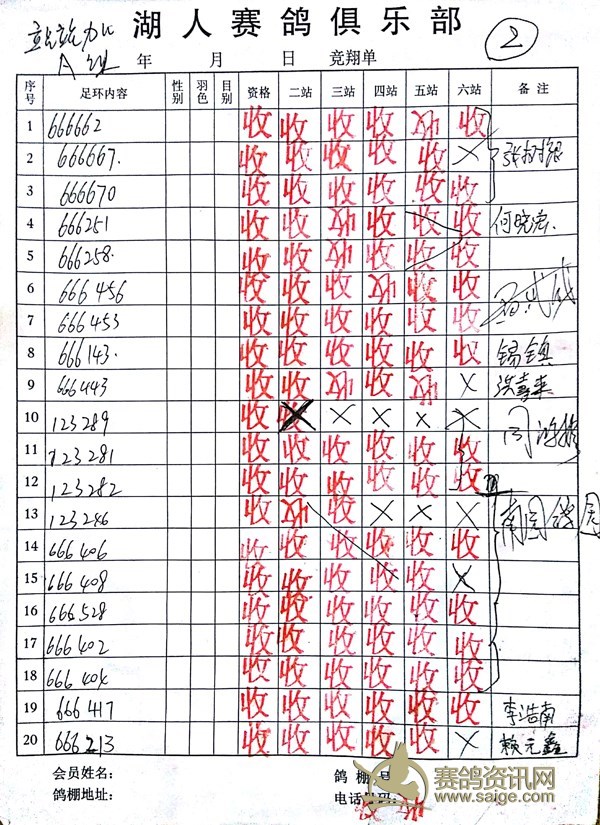 湖人赛鸽俱乐部
②
A组 年 月 日 竞翔单
序号 足环内容 性别 羽色 目别 资格 二站 三站 四站 五站 六站 备注
1 666662 收 收 收 收 收 收
2 666667. 收 收 收 收 收 ×
3 666670 收 收 收 收 收 收
4 666251 收 收 收 收 收 收 何晓宏.
5 666258. 收 收 收 收 收 收
6 666456 收 收 收 收 收 收
7 666453 收 收 收 收 收 收
8 666143. 收 收 收 收 收 收 锡镇
9 666443 收 收 收 收 收 × 洪喜来
10 123289 收 × × × × ×
11 123281 收 收 收 收 收 收
12 123282 收 收 收 收 收 收
13 123246 收 收 收 × × ×
14 666406 收 收 收 收 收 收
15 666408 收 收 收 收 收 ×
16 666528 收 收 收 收 收 收
17 666402 收 收 收 收 收 收
18 666404 收 收 收 收 收 收
19 666417 收 收 收 收 收 收 李浩南
20 666213 收 收 收 收 收 × 赖元鑫
会员姓名: 鸽棚号:
鸽棚地址: 电话号码:
赛鸽资讯网
www.saige.com